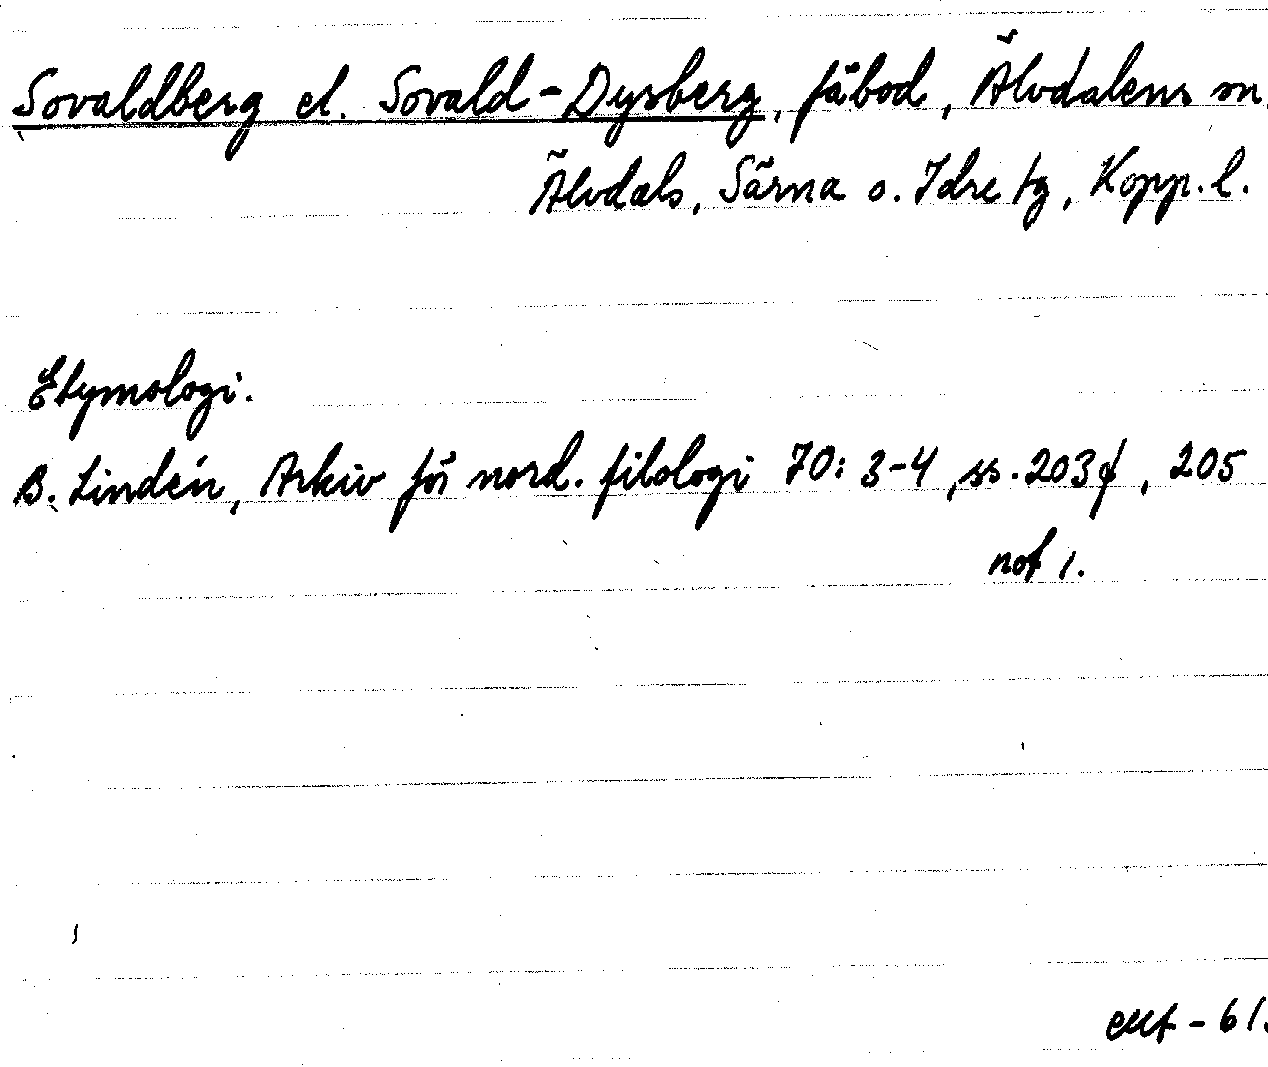 Sovaldberg el. Sovald-Dysberg, fäbod, Älvdalens sn,
Älvdals, Särna o. Idre tg, Kopp. l.
Etymologi.
B. Lindén, Arkiv för nord. filologi 70: 3-4, ss. 203f, 205
not 1.
-61.